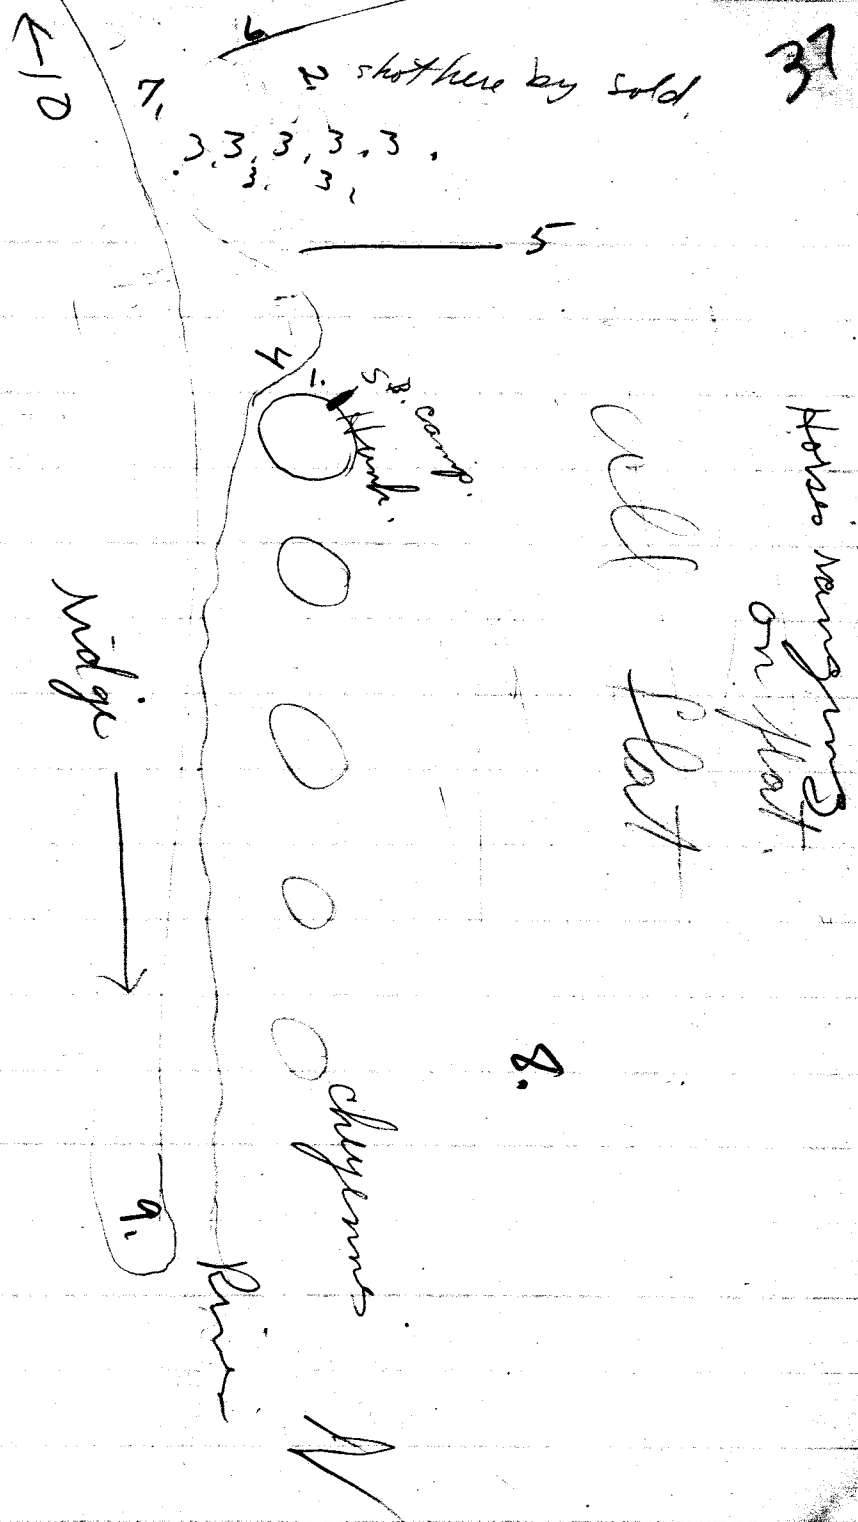 37
6
2 shot here by sold.
7,
←10
3, 3, 3, 3, 3,
3, 3,
5
4
1.
S.B. camp.
Hunk.
Horses ranging
on flat.
all flat
ridge
8.
Cheyennes
9,
River
N